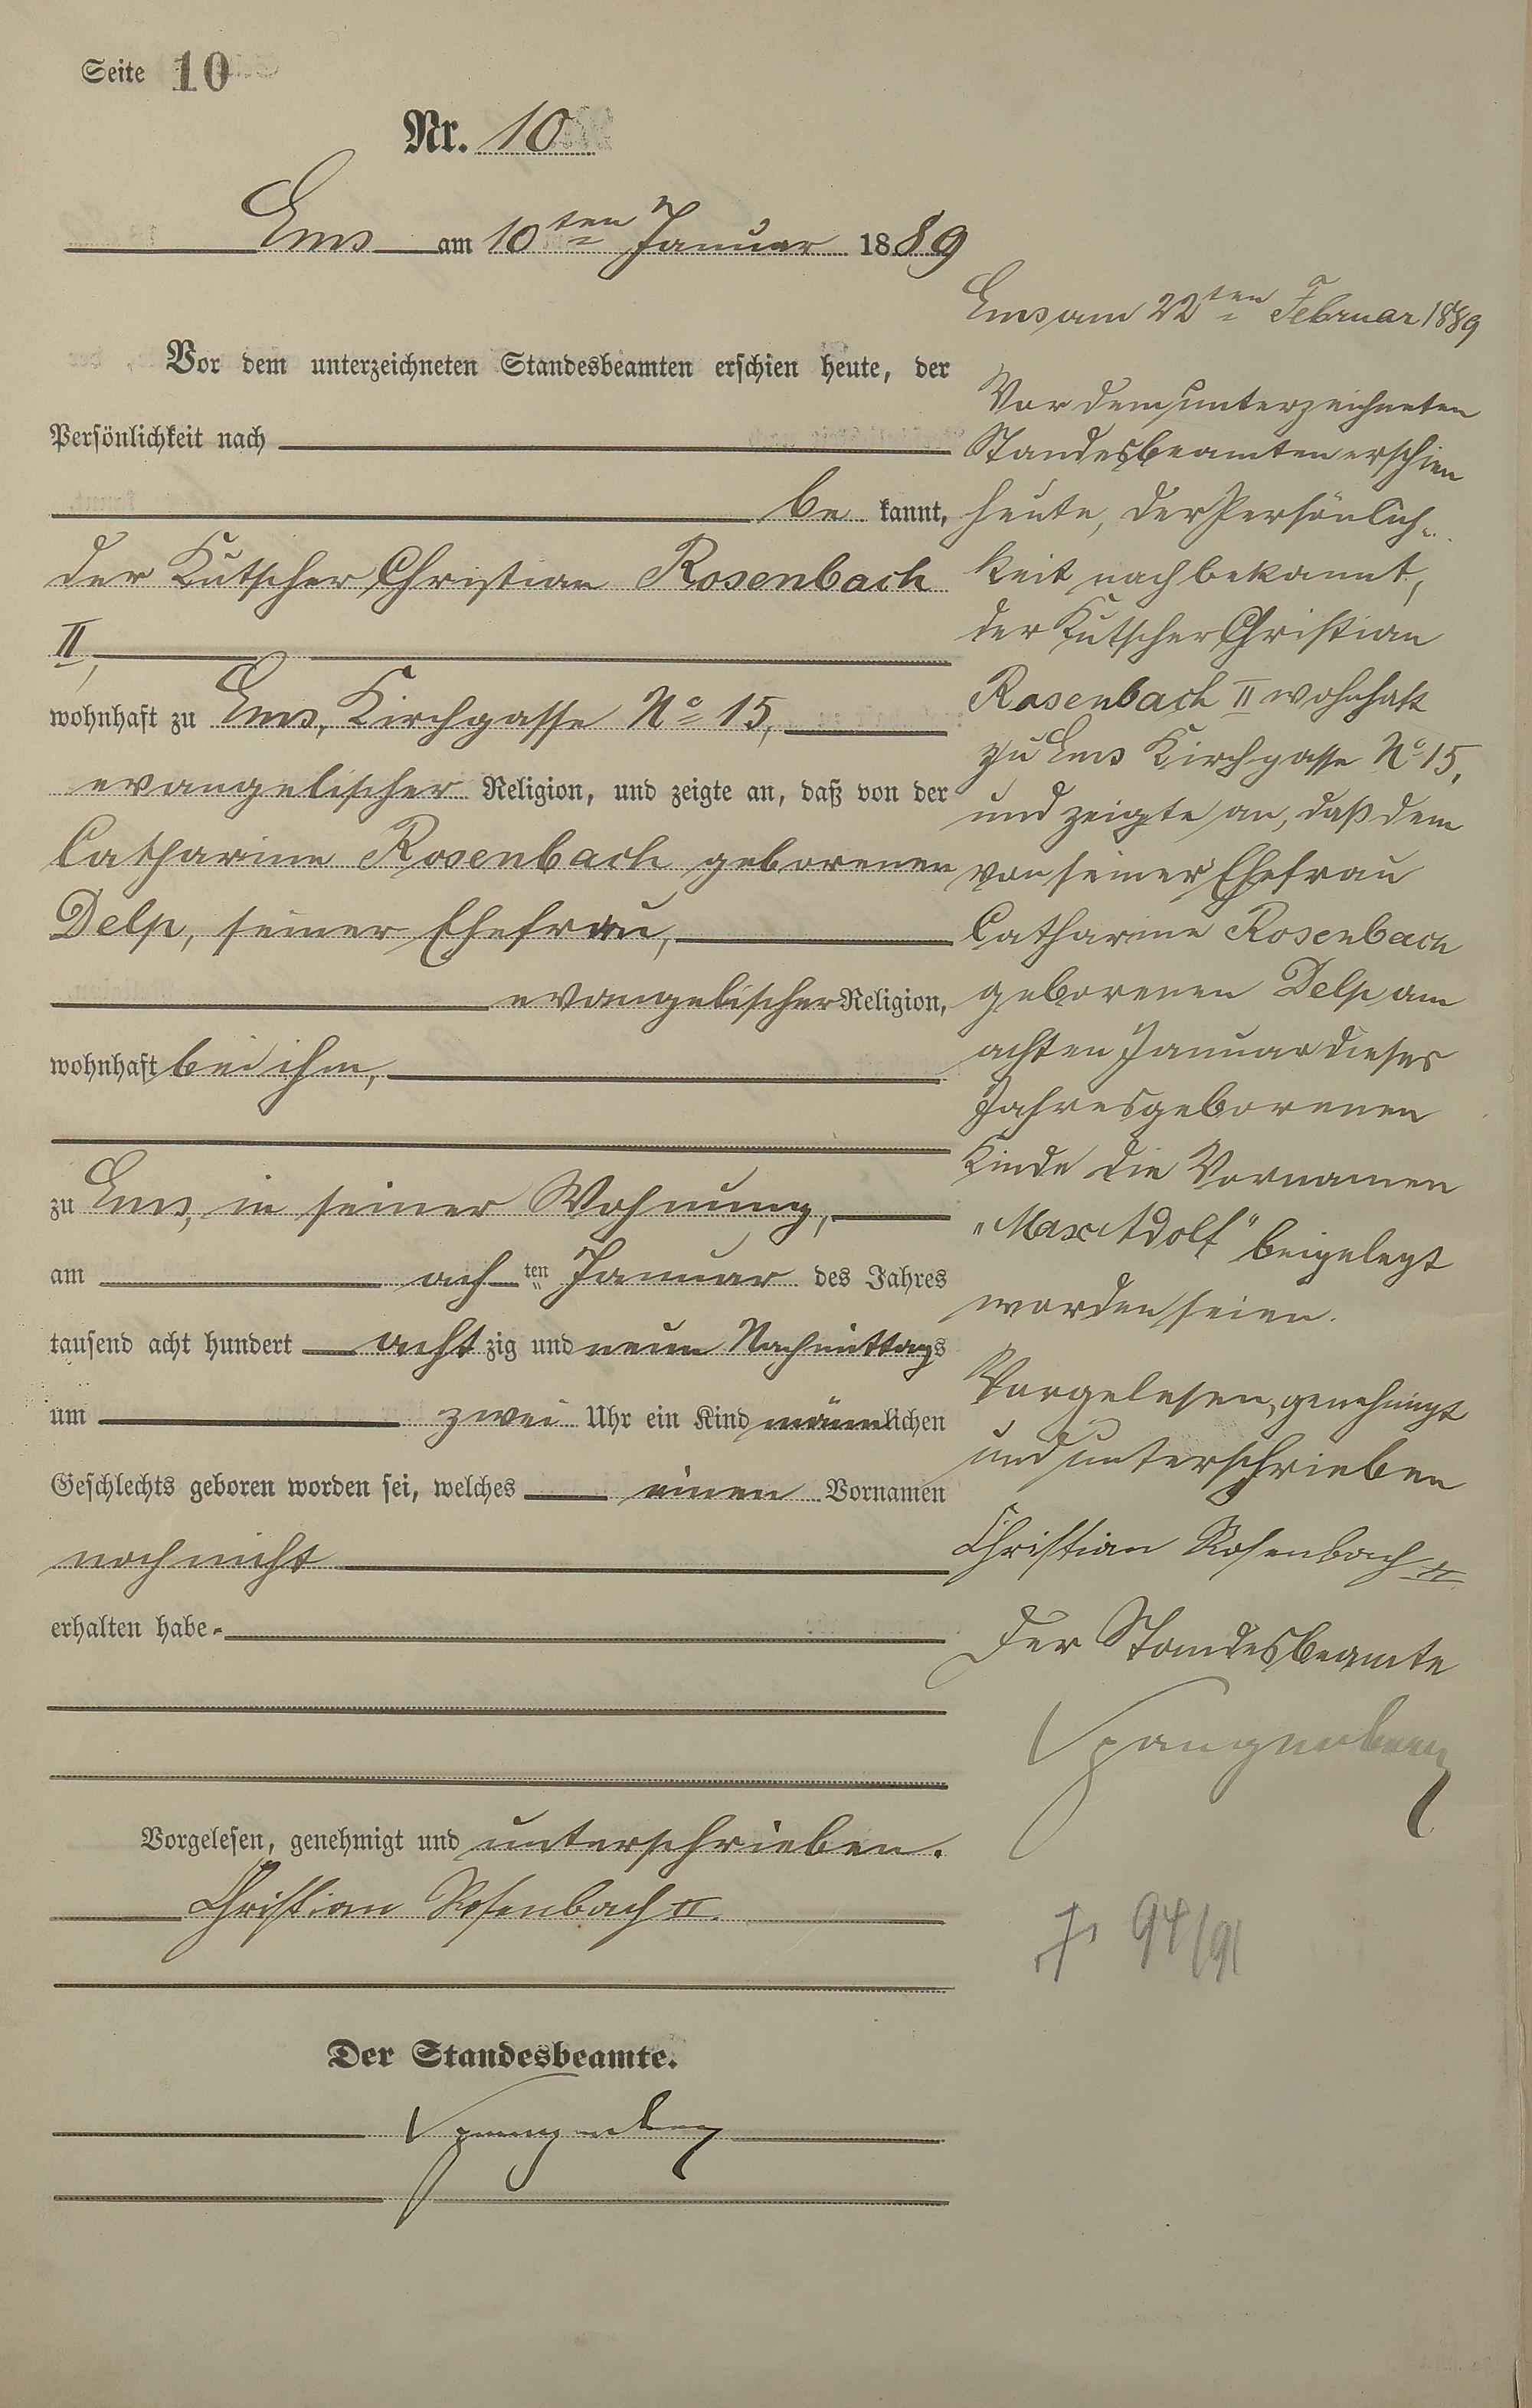 Seite 10
Nr. 10
Ems am 10ten Januar 1889
Vor dem unterzeichneten Standesbeamten erschien heute, der
Persönlichkeit nach
be kannt,
der Kutscher Christian Rosenbach
II,
wohnhaft zu Ems, Kirchgasse No 15,
evangelischer Religion, und zeigte an, daß von der
Catharine Rosenbach geborenen
Delp, seiner Ehefrau,
evangelischer Religion,
wohnhaft bei ihm,
zu Ems, in seiner Wohnung,
am ach ten Januar des Jahres
tausend acht hundert acht zig und neun Nachmittags
um zwei Uhr ein Kind männlichen
Geschlechts geboren worden sei, welches einen Vornamen
noch nicht
erhalten habe.
Vorgelesen, genehmigt und unterschrieben.
Christian Rosenbach II.
Der Standesbeamte.
Spangenberg
Ems am 22ten Februar 1889
Vor dem unterzeichneten
Standesbeamten erschien
heute, der Persönlich-
keit nach bekannt,
der Kutscher Christian
Rosenbach II wohnhaft
zu Ems Kirchgasse No 15,
und zeigte an, daß dem
von seiner Ehefrau
Catharine Rosenbach
geborenen Delp am
achten Januar dieses
Jahres geborenen
Kinde die Vornamen
"Max Adolf" beigelegt
worden seien.
Vorgelesen, genehmigt
und unterschrieben
Christian Rosenbach II
Der Standesbeamte
Spangenberg
94/91